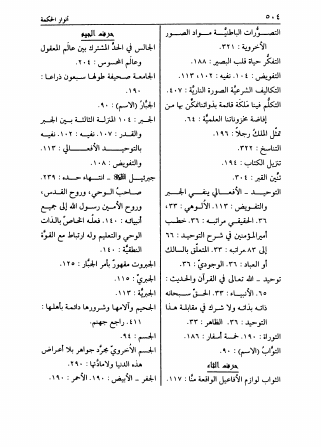 ٥٠٤
أنوار الحكمة
التصوّرات الباطنيّة مواد الصور
الأخروية: ٣٢١.
التفكّر حياة قلب البصير: ١٨٨.
التفويض: ١٠٤. نفيه: ١٠٢، ١١٣.
التكاليف الشرعيّة الصورة النارية: ٤٠٧.
التكلّم فينا ملكة قائمة بذواتنا نتمكّن بها من
إفاضة مخزوناتنا العلمية: ٦٤.
تمثّل الملك رجلاً: ١٩٦.
التناسخ: ٣٢٢.
تنزيل الكتاب: ١٩٤.
تنّين القبر: ٣٠٤.
التوحيد ـ الأفعالي ينفي الجبر
والتفويض: ١١٣. الألوهي: ٣٣،
٣٦. الحقيقي مراتبه: ٣٦. خطب
أميرالمؤمنين في شرح التوحيد: ٦٦
إلى ٨٣ مراتبه: ٣٣. المتعلّق بالسالك
أو العباد: ٣٦. الوجودي: ٣٦.
توحيد ـ الله تعالى في القرآن والحديث:
٦٥. الأنبياء: ٣٣. الحقّ سبحانه
ذاته بذاته ولا شرك في مقابلة هذا
التوحيد: ٣٦. الظاهر: ٣٣.
التوراة: ١٩٠. خمسة أسفار: ١٨٦.
التوّاب (الاسم): ٩٠.
حرف الثاء
الثواب لوازم الأفاعيل الواقعة منّا: ١١٧.
حرف الجيم
الجالس في الحدّ المشترك بين عالم المعقول
وعالم المحسوس: ٢٠٤.
الجامعة صحيفة طولها سبعون ذراعاً:
١٩٠.
الجبّار (الاسم): ٩٠.
الجبر: ١٠٤ المنزلة الثالثة بين الجبر
والقدر: ١٠٧. نفيه: ١٠٢. نفيه
بالتوحيد الأفعالي: ١١٣.
والتفويض: ١٠٨.
جبرئيل ـ انتهاء حده: ٢٣٩.
صاحب الوحي، وروح القدس،
وروح الأمين رسول الله إلى جميع
أنبيائه: ١٤٠. فعله الخاصّ بالذات
الوحي والتعليم وله ارتباط مع القوّة
النطقيّة: ١٤٠.
الجبروت مقهور بأمر الجبّار: ١٢٥.
الجبري: ١١٥.
الجبريّة: ١١٣.
الجحيم وآلامها وشرورها دائمة بأهلها:
٤١١. راجع جهنم.
الجسم: ٩٤.
الجسم الأخروي مجرّد جواهر بلا أعراض
هذه الدنيا ولا مادّتها: ٢٩٠.
الجفر ـ الأبيض: ١٩٠. الأحمر: ١٩٠.